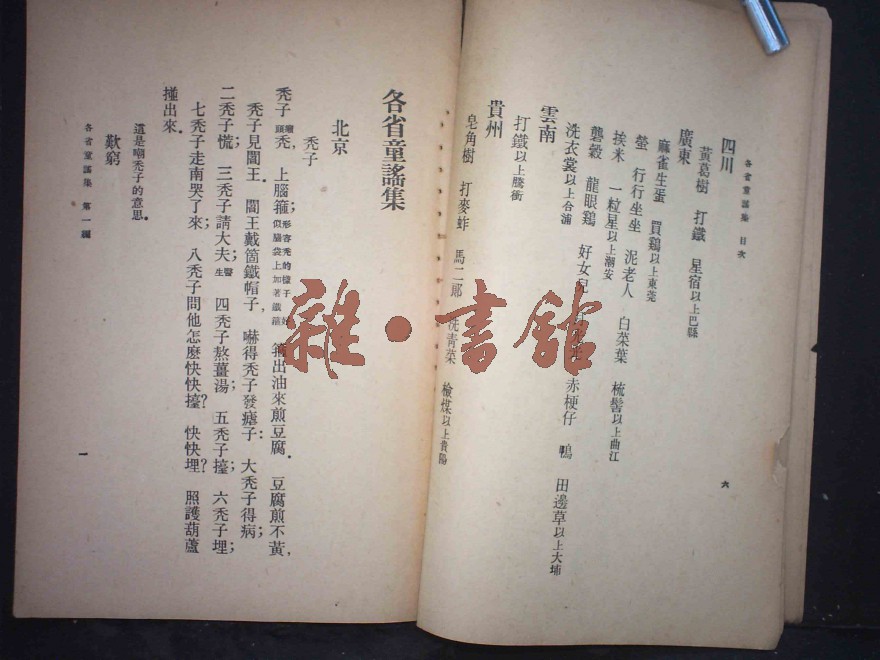 各省童謠集 目次
六
四川
黃葛樹 打鐵 星宿以上巴縣
廣東
麻雀生蛋 買鷄以上東莞
螢 行行坐坐 泥老人 白菜葉 梳髻以上曲江
挨米 一粒星以上潮安
礱穀 龍眼鷄 好女兒
洗衣裳以上合浦 赤梗仔 鴨 田邊草以上大埔
雲南
打鐵以上騰衝
貴州
皂角樹 打麥蚱 馬二郎 洗青菜 檢煤以上貴陽
各省童謠集
北京
禿子
禿子禿，上腦箍；形容禿的樣子好似腦袋上加著鐵箍 箍出油來煎豆腐．豆腐煎不黃，
禿子見閻王．閻王戴箇鐵帽子，嚇得禿子發瘧子：大禿子得病；
二禿子慌；三禿子請大夫醫生；四禿子熬薑湯；五禿子擡；六禿子埋；
七禿子走南哭了來；八禿子問他怎麼快快擡？快快埋？照護葫蘆
撞出來．
這是嘲禿子的意思．
歎窮
各省童謠集 第一編
一
雜·書館